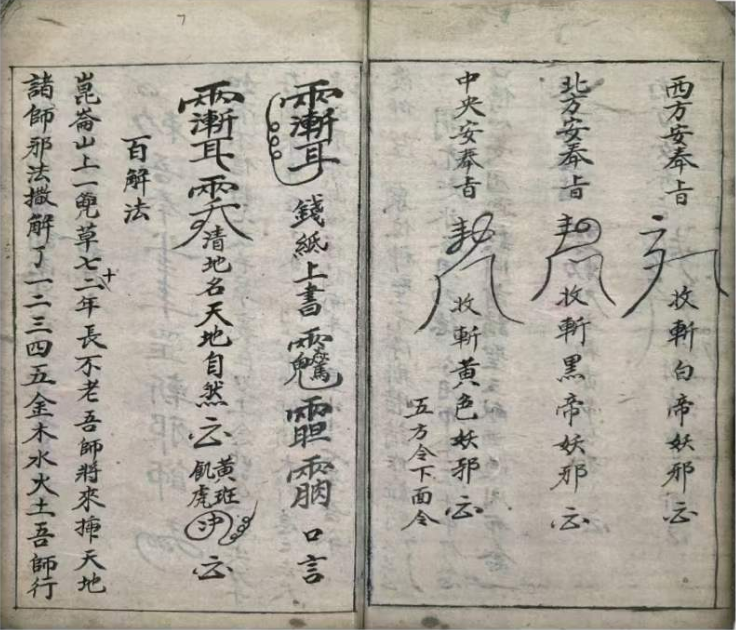 西方安奉旨 收斬白帝妖邪云
北方安奉旨 收斬黑帝妖邪云
中央安奉旨 收斬黃色妖邪云
五方令下面令
錢紙上書 口言
清地名天地自然云 黃斑飢虎 云
百解法
崑崙山上一兜草七十二年長不老吾師將來挿天地
諸師邪法撒解了一二三四五金木水火土吾師行